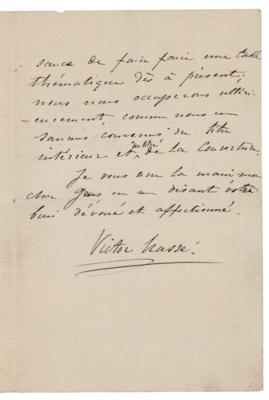 sance de faire faire une table
thématique dès à présent;
nous nous occuperons ultéri
-eurement, comme nous en
sommes convenus du titre
intérieur et du titre de la Couverture.
Je vous serre la main mon
cher Gens en me disant votre
bien dévoué et affectionné.
Victor Massé.